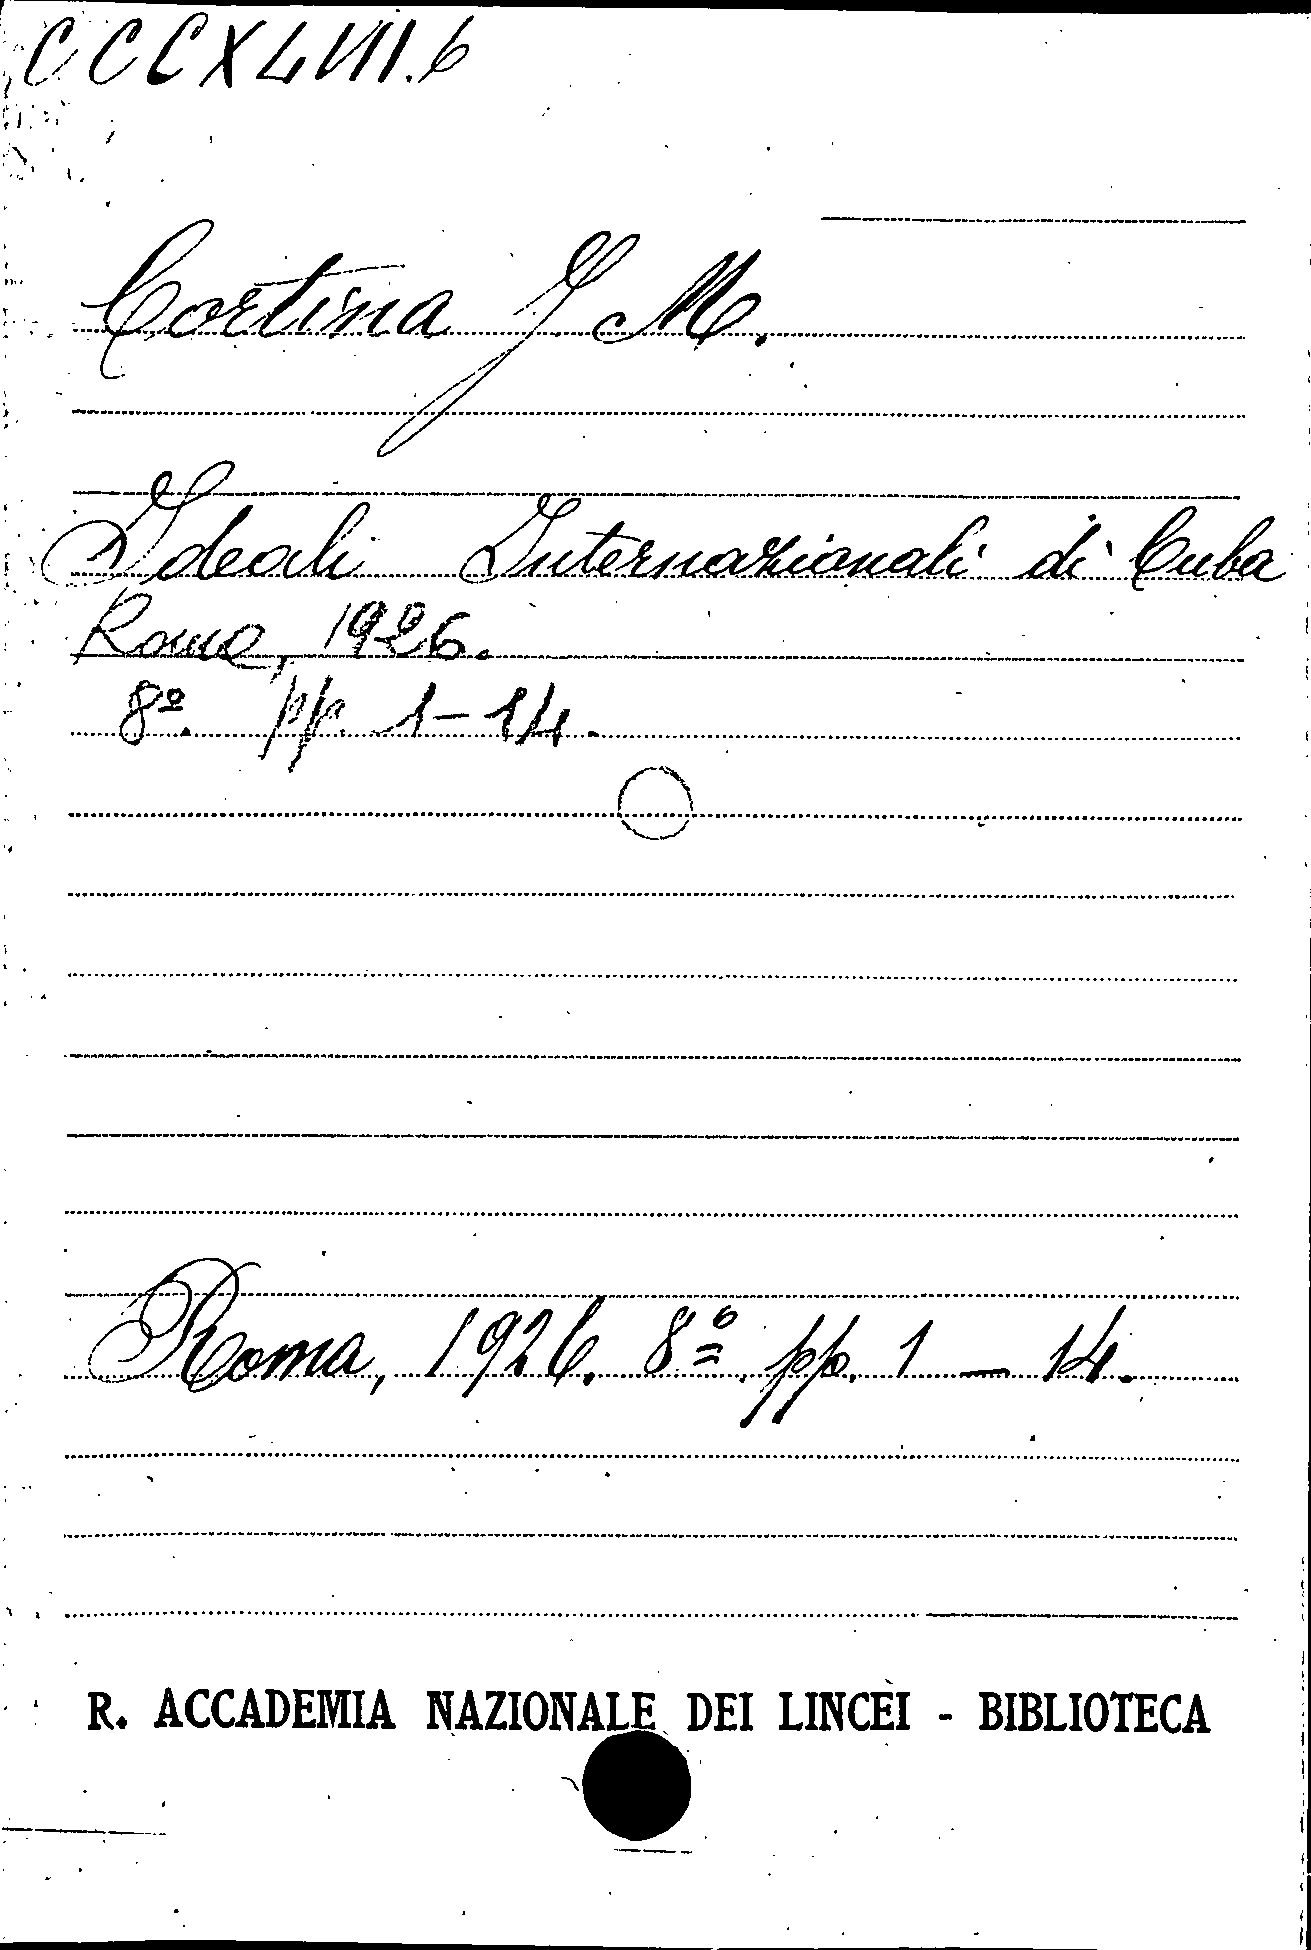 CCCXLVIII.6
Cortina J M.
Ideali Internazionali di Cuba
Roma, 1926.
8º. pp. 1-14.
Roma, 1926. 8º. pp. 1 - 14.
R. ACCADEMIA NAZIONALE DEI LINCEI - BIBLIOTECA